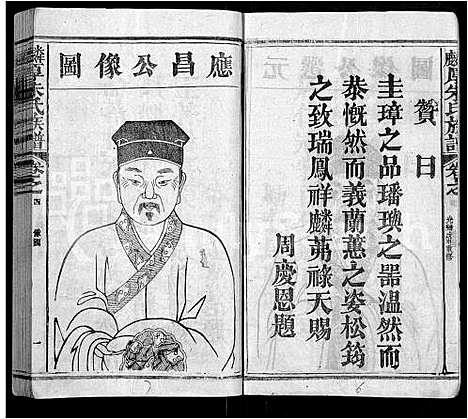 麟阜朱氏族譜
卷之
贊曰
圭璋之品璠璵之器溫然而
恭慨然而義蘭蕙之姿松筠
之致瑞鳳祥麟茀祿天賜
周慶恩題
應昌公像圖
麟阜朱氏族譜
卷之四
像圖
一